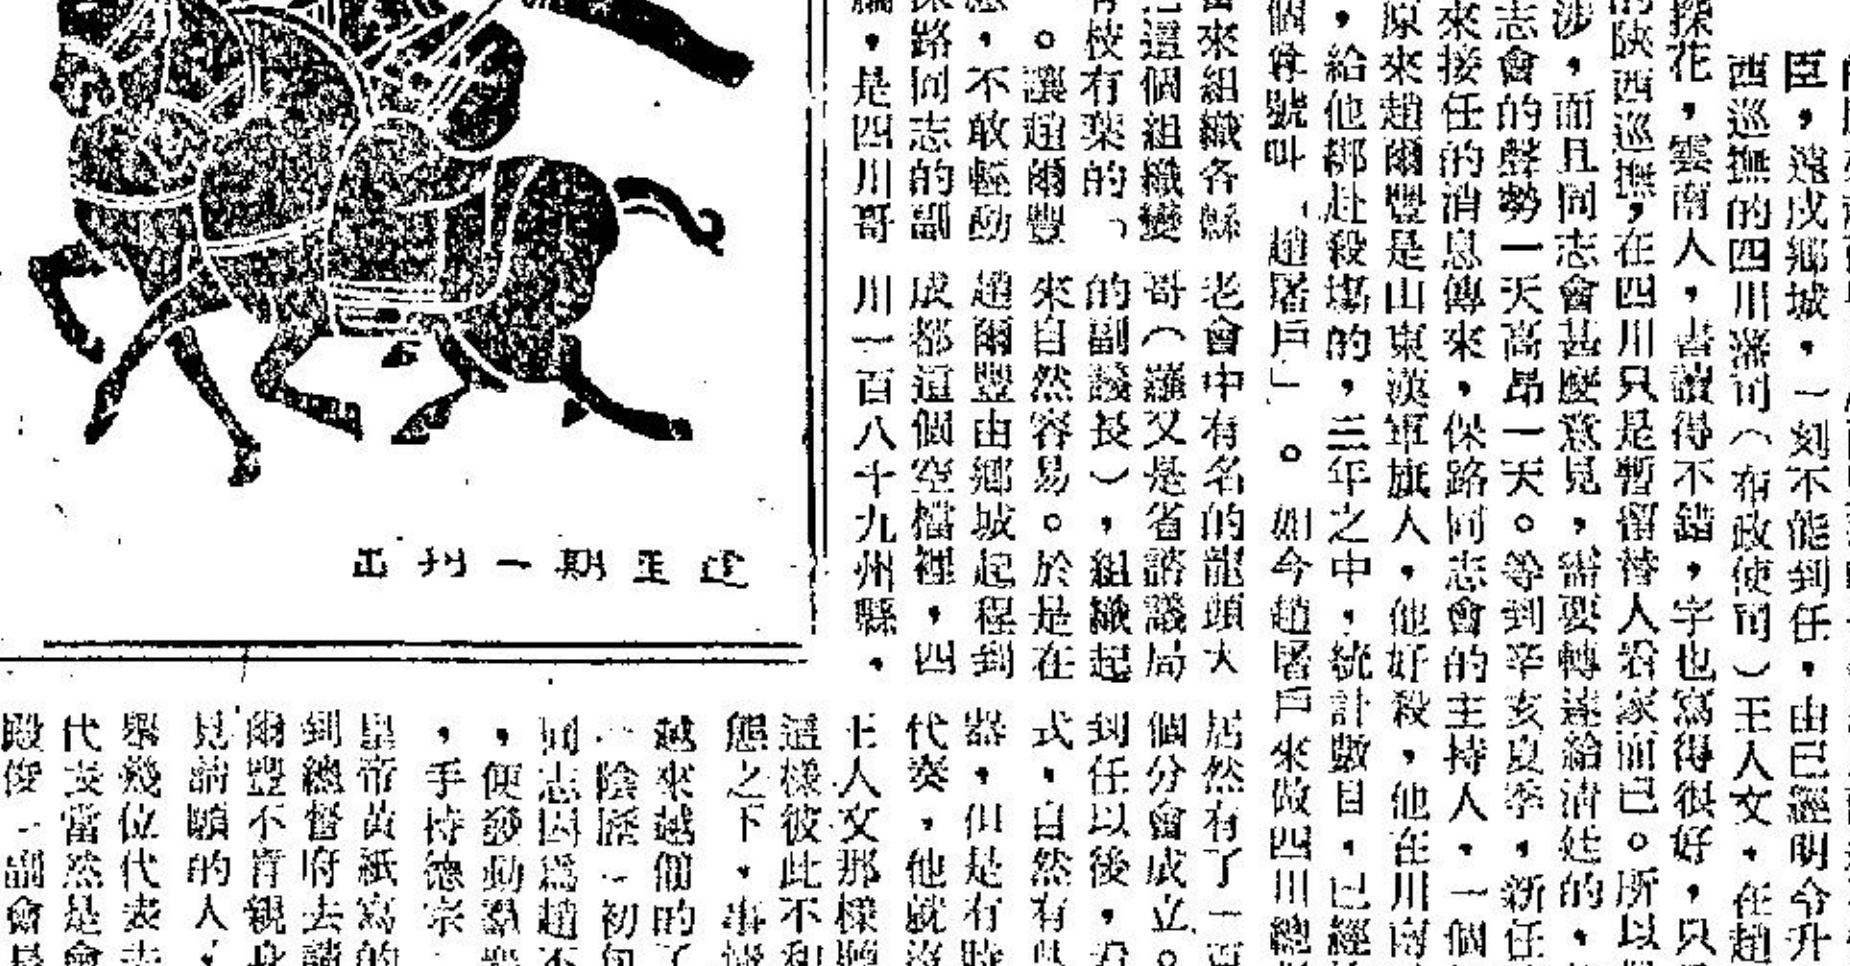 臣，遠戍鄉城，一刻不能到任，由巳經明令升
西巡撫的四川藩司（布政使司）王人文，在趙
探花，雲南人，書讀得不錯，字也寫得很好，只
的陝西巡撫，在四川只是暫留替人看家而已。所以
涉，而且同志會甚麼意見，需要轉達給清廷的，
志會的聲勢一天高昂一天。等到辛亥夏季，新任
來接任的消息傳來，保路同志會的主持人，一個
原來趙爾豐是山東漢軍旗人，他好殺，他在川南
，給他綁赴殺場的，三年之中，統計數目，已經
個諢號叫「趙屠戶」。如今趙屠戶來做四川總
來組織各縣
這個組織變
有枝有葉的。
。讓趙爾豐
，不敢輕動
保路同志的副
，是四川哥
老會中有名的龍頭大
哥（羅又是省諮議局
的副議長），組織起
來自然容易。於是在
趙爾豐由鄉城起程到
成都這個空檔裡，四
川一百八十九州縣，
居然有了一百
個分會成立。
到任以後，
式，自然有
器，但是有時
代奏，他就沒
王人文那樣聽
這樣彼此不和
態之下，事情
越來越僵的了
陰歷 初旬
同志因爲趙不
，便發動羣眾
，手持德宗
皇帝黃紙寫的
到總督府去請
爾豐不肯親身
見請願的人，
舉幾位代表去
代表當然是會
殿俊，副會長